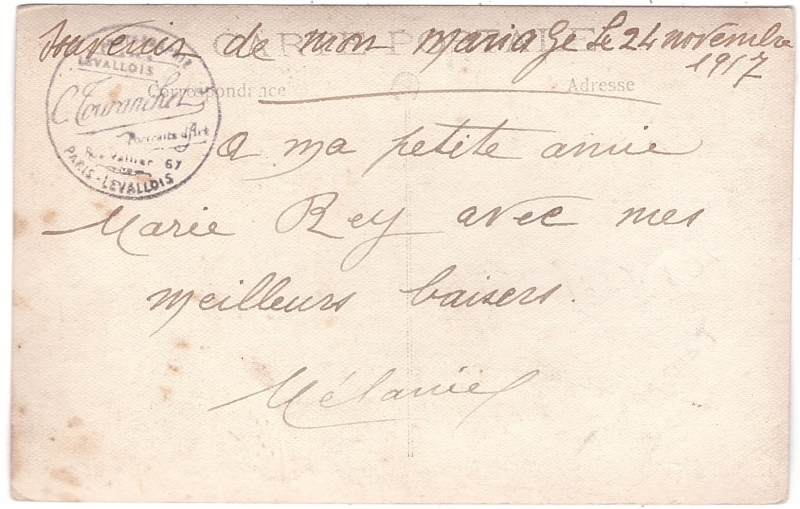 Souvenir de mon mariage le 24 novembre
1917
CARTE POSTALE
Correspondance
Adresse
LEVALLOIS
C. Touranchet
Portraits d'Art
Rue Vallier 67
PARIS-LEVALLOIS
A ma petite amie
Marie Rey avec mes
meilleurs baisers.
Mélanie